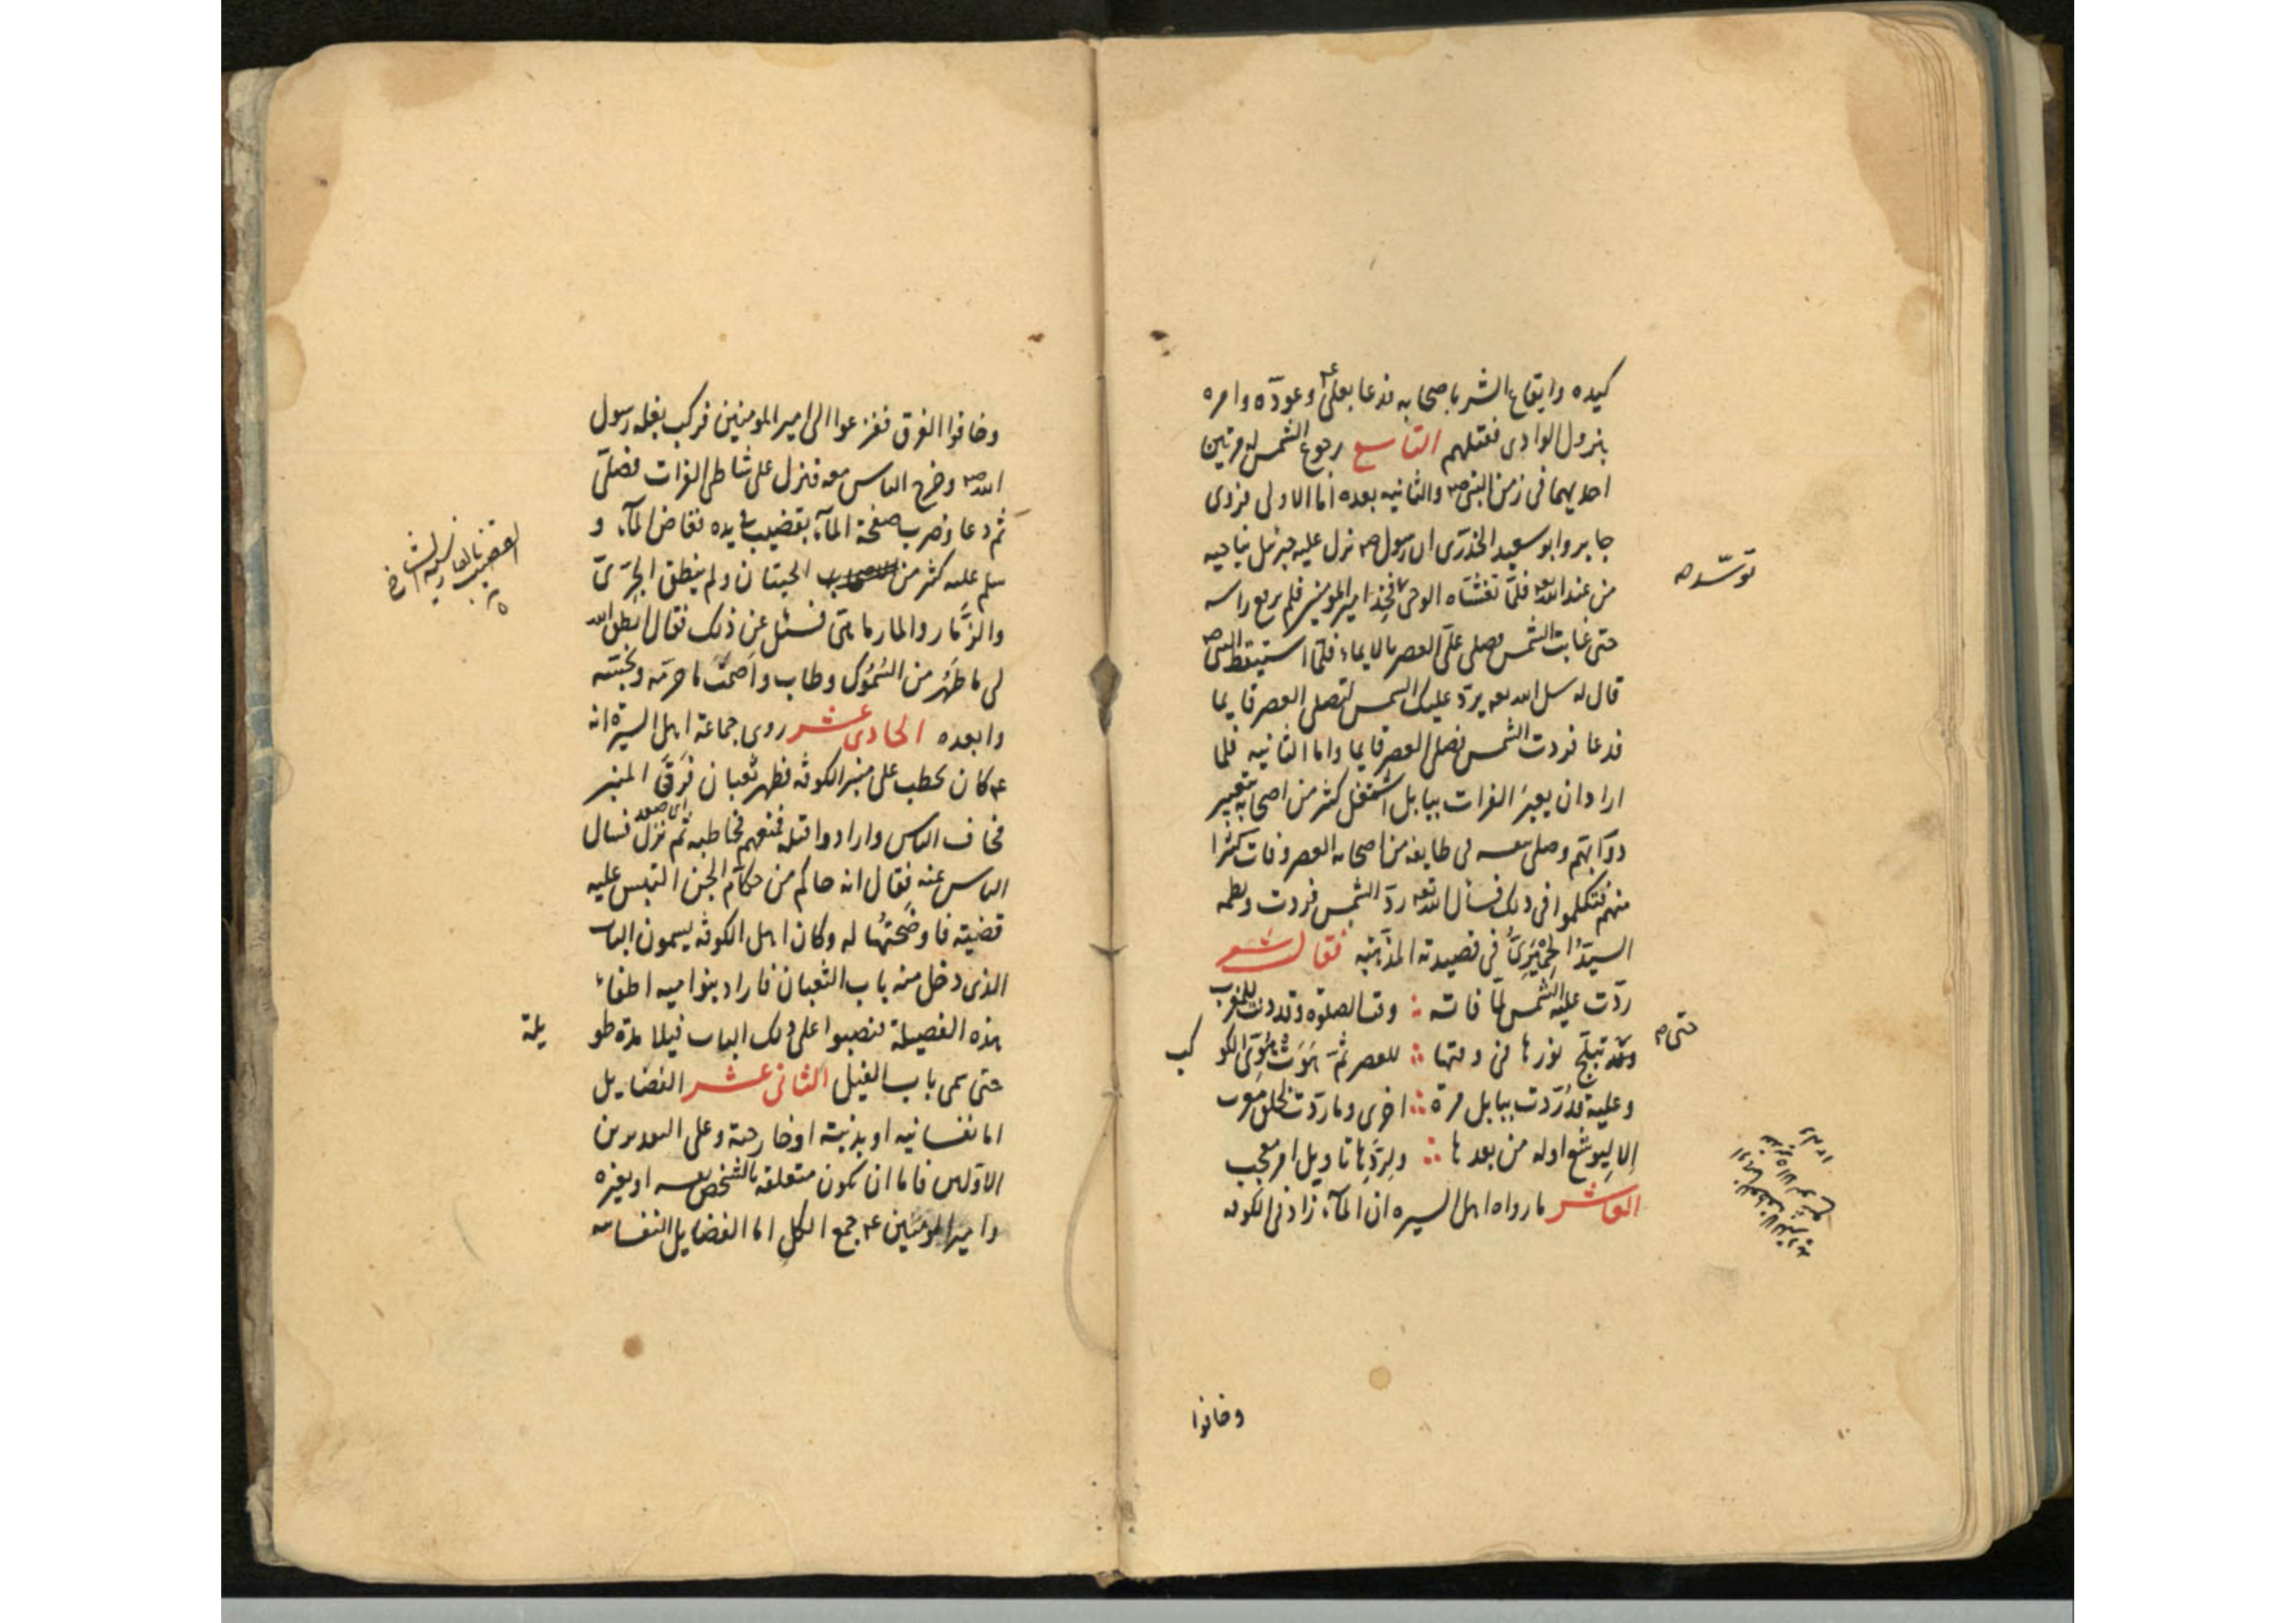 كيده وايقاع الشر باصحابه فدعا بعلى ع وعوذه وامره
بنزول الوادى فقتلهم التاسع رجوع الشمس له مرتين
احديهما فى زمن النبى ص والثانيه بعده اما الاولى فروى
جابر وابو سعيد الخدرى ان رسول ص نزل عليه جبرئيل يناجيه
من عند الله فلما تغشاه الوحى فخذ امير المومنين فلم يرفع راسه
توسد ص
حتى غابت الشمس فصلى على العصر بالايماء فلما استيقظ النبى ص
قال له سل الله يرد عليك الشمس لتصلى العصر قايما
فدعا فردت الشمس فصلى العصر قايما واما الثانيه فلما
اراد ان يعبر الفرات ببابل اشتغل كثير من اصحابه بتعبير
دوابهم وصلى بنفسه فى طايفه من اصحابه العصر وفات كثيرا
منهم فتكلموا فى ذلك فسال الله رد الشمس فردت ونظمه
السيد الحميرى فى قصيدته المذهبه فقال شعر
ردت عليه الشمس لما فاته وقت الصلوة وقد دنت للمغرب
حتى تبلج نورها فى وقتها للعصر ثم هوت هوى الكوكب
وعليه قد ردت ببابل مرة اخرى وما ردت لخلق معرب
الا ليوشع اوله من بعدها ولردها تاويل امر معجب
العاشر ما رواه اهل السيره ان الماء زاد فى الكوفه
وخافوا
وخافوا الغرق ففزعوا الى امير المومنين فركب بغله رسول
الله ص وخرج الناس معه فنزل على شاطى الفرات فصلى
ثم دعا وضرب صفحة الماء بقضيب فى يده فغاض الماء و
سلم عليه كثير من الحيتان ولم ينطق الجرى
والزمار والمارماهى فسئل عن ذلك فقال انطق الله
لى ما طهر من السموك وطاب واصمت ما حرمه ونجسه
وابعده الحادى عشر روى جماعة اهل السيرة انه
ع كان يخطب على منبر الكوفه فظهر ثعبان فرقى المنبر
اى صعد
فخاف الناس وارادوا قتله فمنعهم فخاطبه ثم نزل فسال
الناس عنه فقال انه حاكم من حكام الجن التبس عليه
قضيته فاوضحتها له وكان اهل الكوفه يسمون الباب
الذى دخل منه باب الثعبان فاراد بنوا ميه اطفاء
هذه الفضيلة فنصبوا على ذلك الباب فيلا مدة طو
يلة
حتى سمى باب الفيل الثانى عشر الفضايل
اما نفسانيه او بدنية او خارجة وعلى التقديرين
الاولين فاما ان تكون متعلقه بالشخص نفسه او بغيره
وامير المومنين ع جمع الكل اما الفضايل النفسانيه